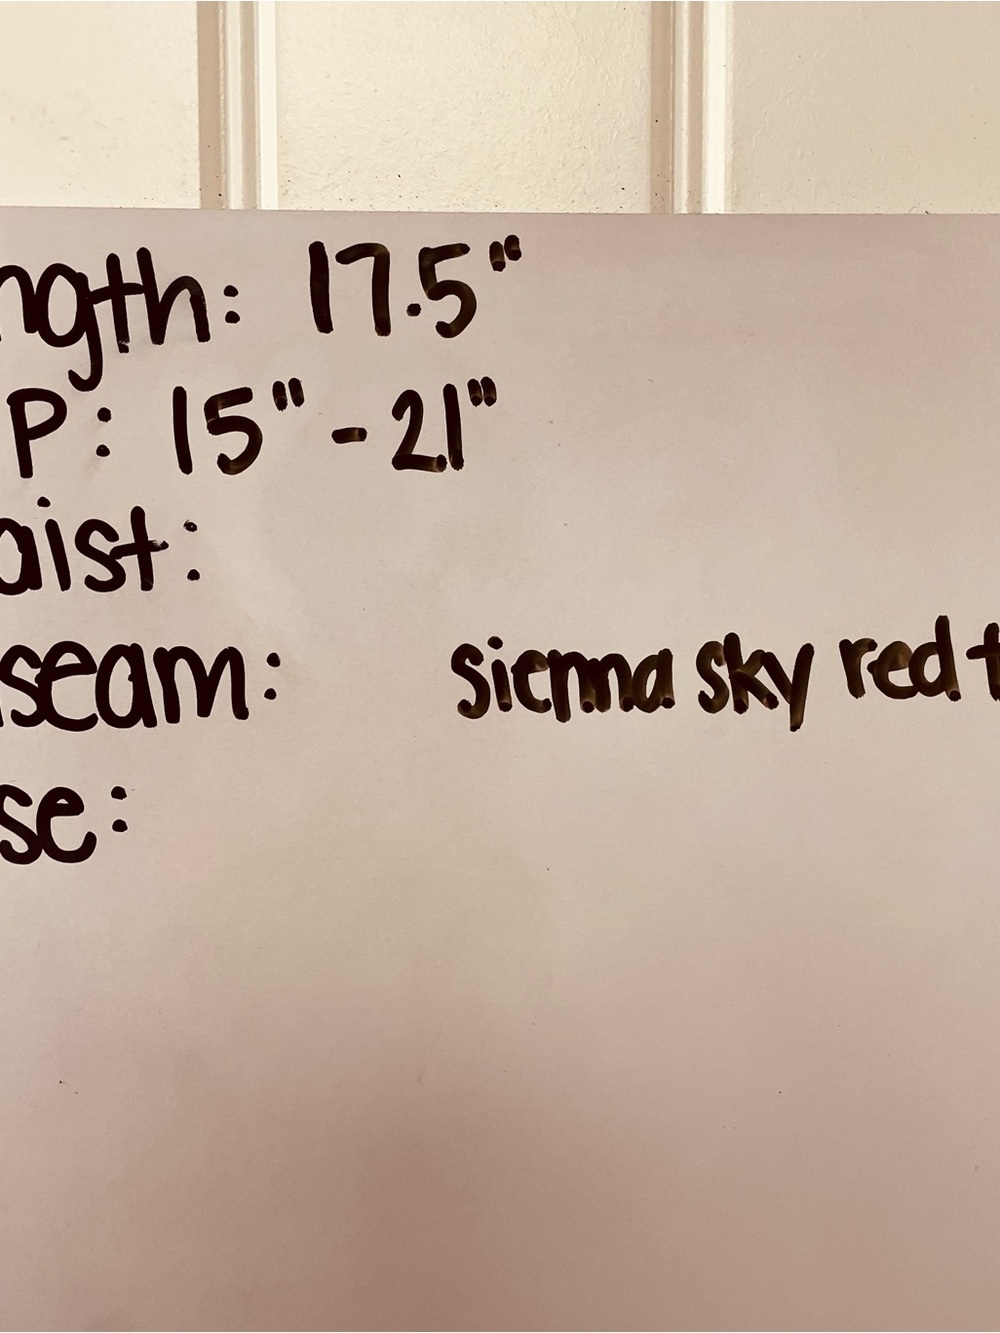 ngth: 17.5"
P: 15" - 21"
aist:
seam:
sienna sky red t
se: